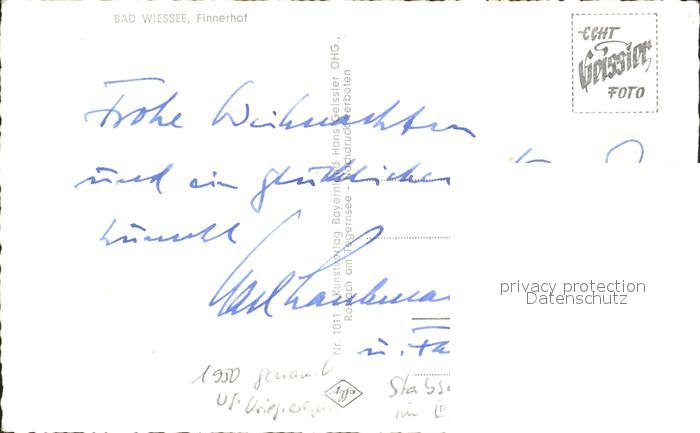 BAD WIESSEE, Finnerhof
ECHT
Geissler
FOTO
Frohe Weihnachten
und ein glückliches
wünscht
Karl
u. Fa
Nr. 1011 Kunstverlag Bayernland Hans Geissler OHG.,
am Tegernsee - Nachdruck verboten
privacy protection
Datenschutz
1950
Agfa